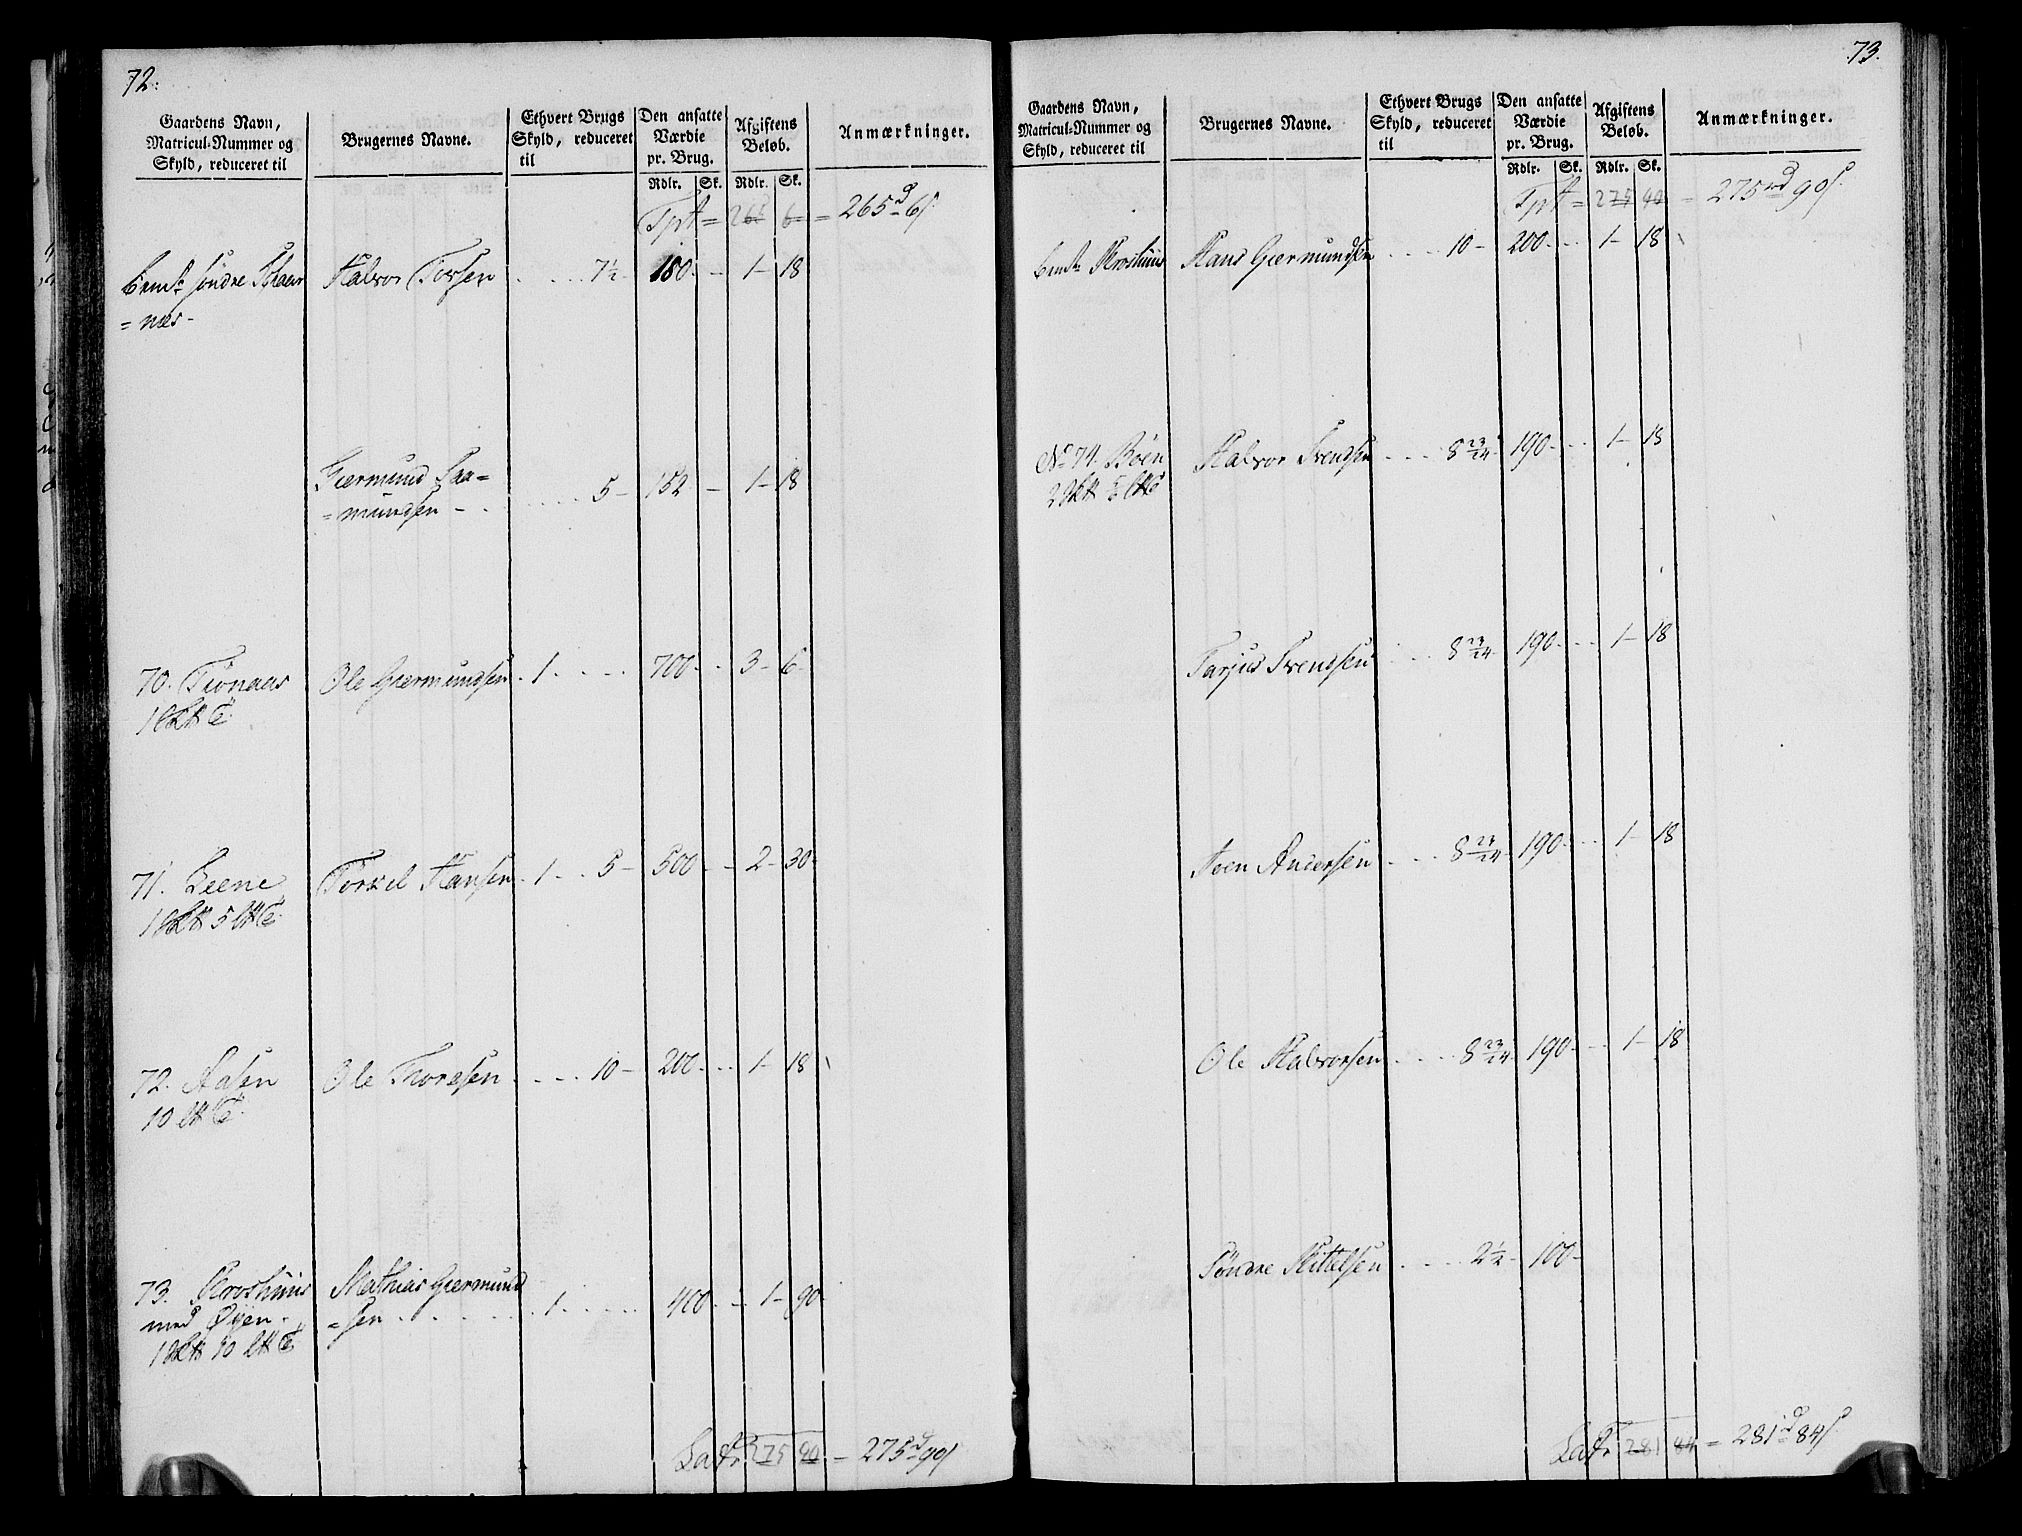 72.
Gaardens Navn, Matricul-Nummer og Skyld, reduceret til
Brugernes Navne.
Ethvert Brugs Skyld, reduceret til
Den ansatte Værdie pr. Brug.
Afgiftens Beløb.
Anmærkninger.
Rdlr. Sk. Rdlr. Sk.
Tpt = 265 6 = 265 d 6 s
bemte søndre
= næs - Halvor Torsen . . . . 7½ 150 - 1 - 18
Giermund Saa=
=mundsen - . . . . . 5 - 152 - 1 - 18
70. Tiønaas Ole Giermundsen . 1 . . . . 700 - . 3 - 6
71. Leene Torkel Hansen . 1 . . 5 - 500 - - 2 - 30
72. Aasen Ole Thoresen . . . . 10 - 200 - . . 1 - 18
73. Kroshuus Mathias Giermund
med Øyen . =sen . . . . . . 1 . . . . . 400 - - 1 - 90
Latr 275 90 = 275 d 90 s
73.
Gaardens Navn, Matricul-Nummer og Skyld, reduceret til
Brugernes Navne.
Ethvert Brugs Skyld, reduceret til
Den ansatte Værdie pr. Brug.
Afgiftens Beløb.
Anmærkninger.
Rdlr. Sk. Rdlr. Sk.
Tpt = 275 90 = 275 rd 90 s.
bemte Kroshuus Hans Giermundsen . . . . 10 - 200 - . . 1 - 18
No 74. Bøen Halvor Svendsen . . . . 8 23/24 190 - . . 1 - 18
Tarjus Svendsen . . . 8 23/24 190 - . . 1 - 18
Andersen . . . . 8 23/24 190 - . . 1 - 18
Ole Halvorsen . . . . 8 23/24 190 - . . 1 - 18
Søndre Kittelsen . . . . 2½ - 100 -
Latr 281 84 = 281 d 84 s